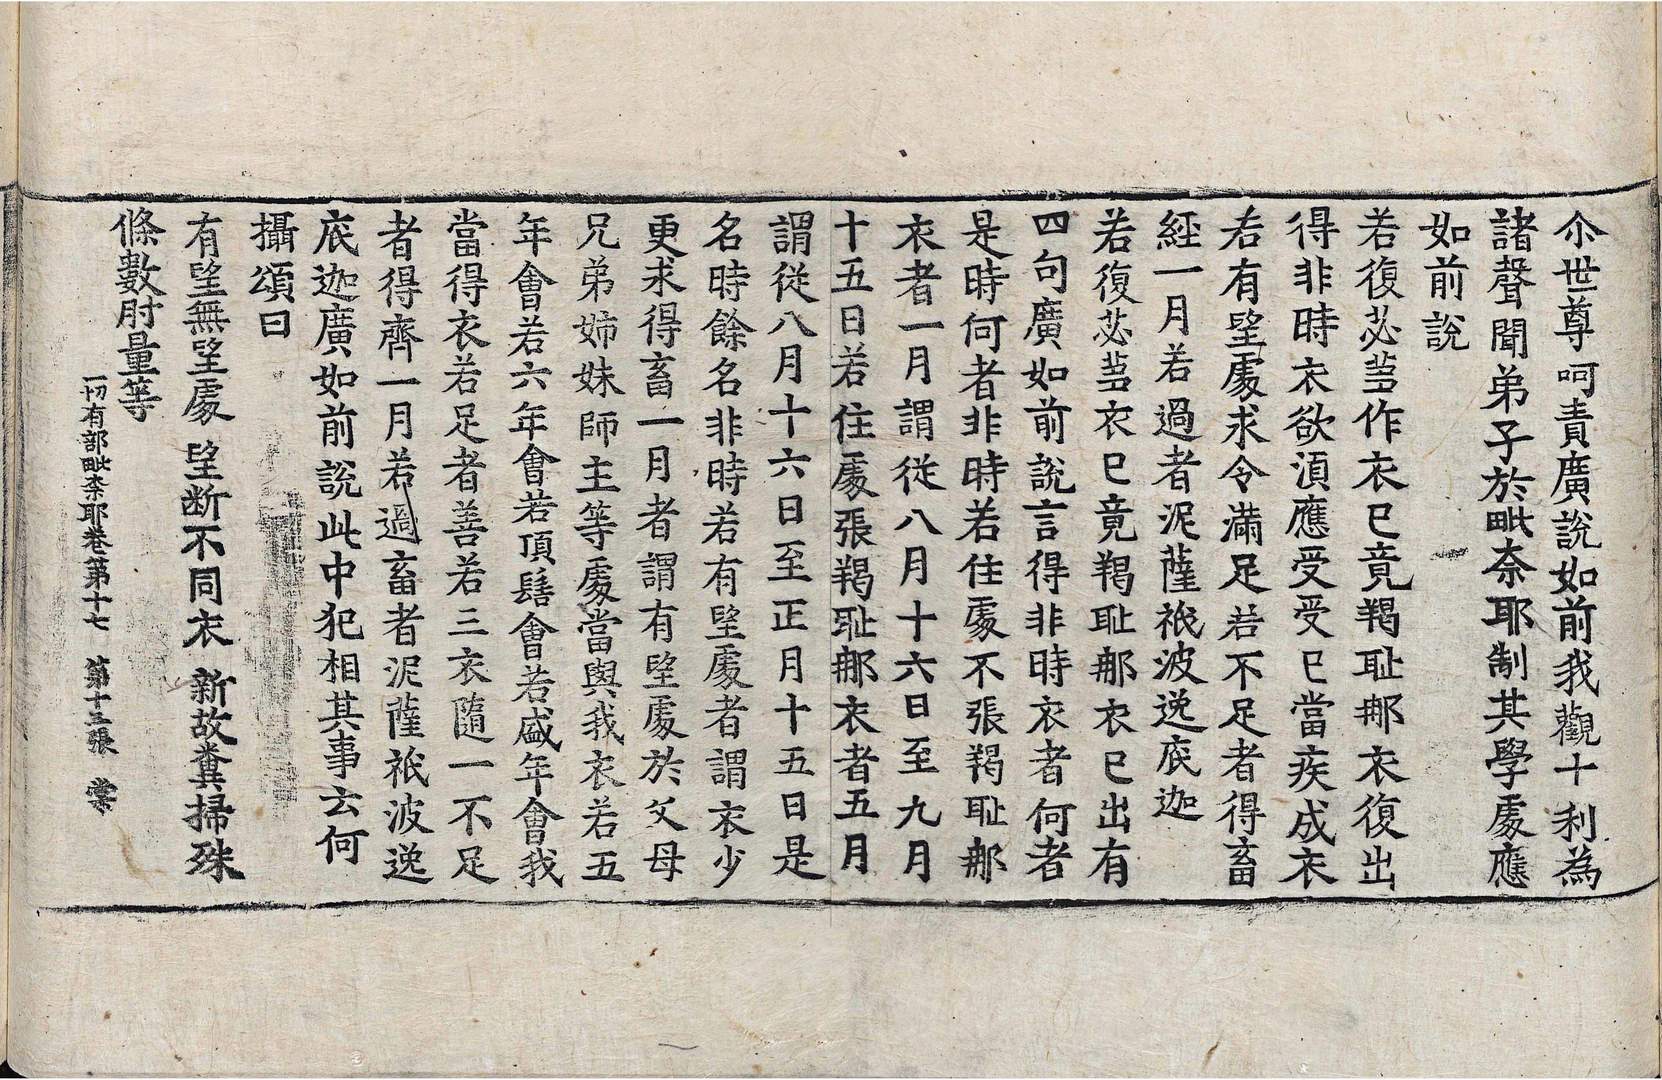 尒世尊呵責廣說如前我觀十利為
諸聲聞弟子於毗奈耶制其學處應
如前說
若復苾芻作衣已竟羯耻那衣復出
得非時衣欲湏應受受已當疾成衣
若有望處求令滿足若不足者得畜
經一月若過者泥薩祇波逸底迦
若復苾芻衣已竟羯耻那衣已出有
四句廣如前說言得非時衣者何者
是時何者非時若住處不張羯耻那
衣者一月謂從八月十六日至九月
十五日若住處張羯耻那衣者五月
謂從八月十六日至正月十五日是
名時餘名非時若有望處者謂衣少
更求得畜一月者謂有望處於父母
兄弟姉妹師主等處當與我衣若五
年會若六年會若頂髻會若盛年會我
當得衣若足者善若三衣隨一不足
者得齊一月若過畜者泥薩祇波逸
底迦廣如前說此中犯相其事云何
攝頌曰
有望無望處 望断不同衣 新故糞掃殊
條數肘量等
一切有部毗奈耶卷第十七 第十三張 棠